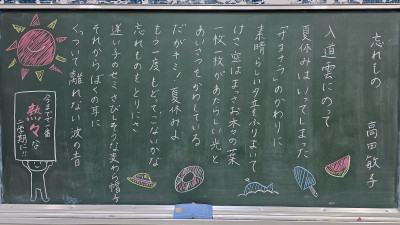 忘れもの　高田敏子
入道雲にのって
夏休みはいってしまった
「サヨナラ」のかわりに
素晴らしい夕立をふりまいて
けさ空はまっさお
木々の葉の一枚一枚が
あたらしい光とあいさつをかわしている
だがキミ！夏休みよ
もう一度もどってこないかな
忘れものをとりにさ
迷い子のセミ
さびしそうな麦わら帽子
それからぼくの耳に
くっついて離れない波の音
今までで一番
熱々な
二学期に!!